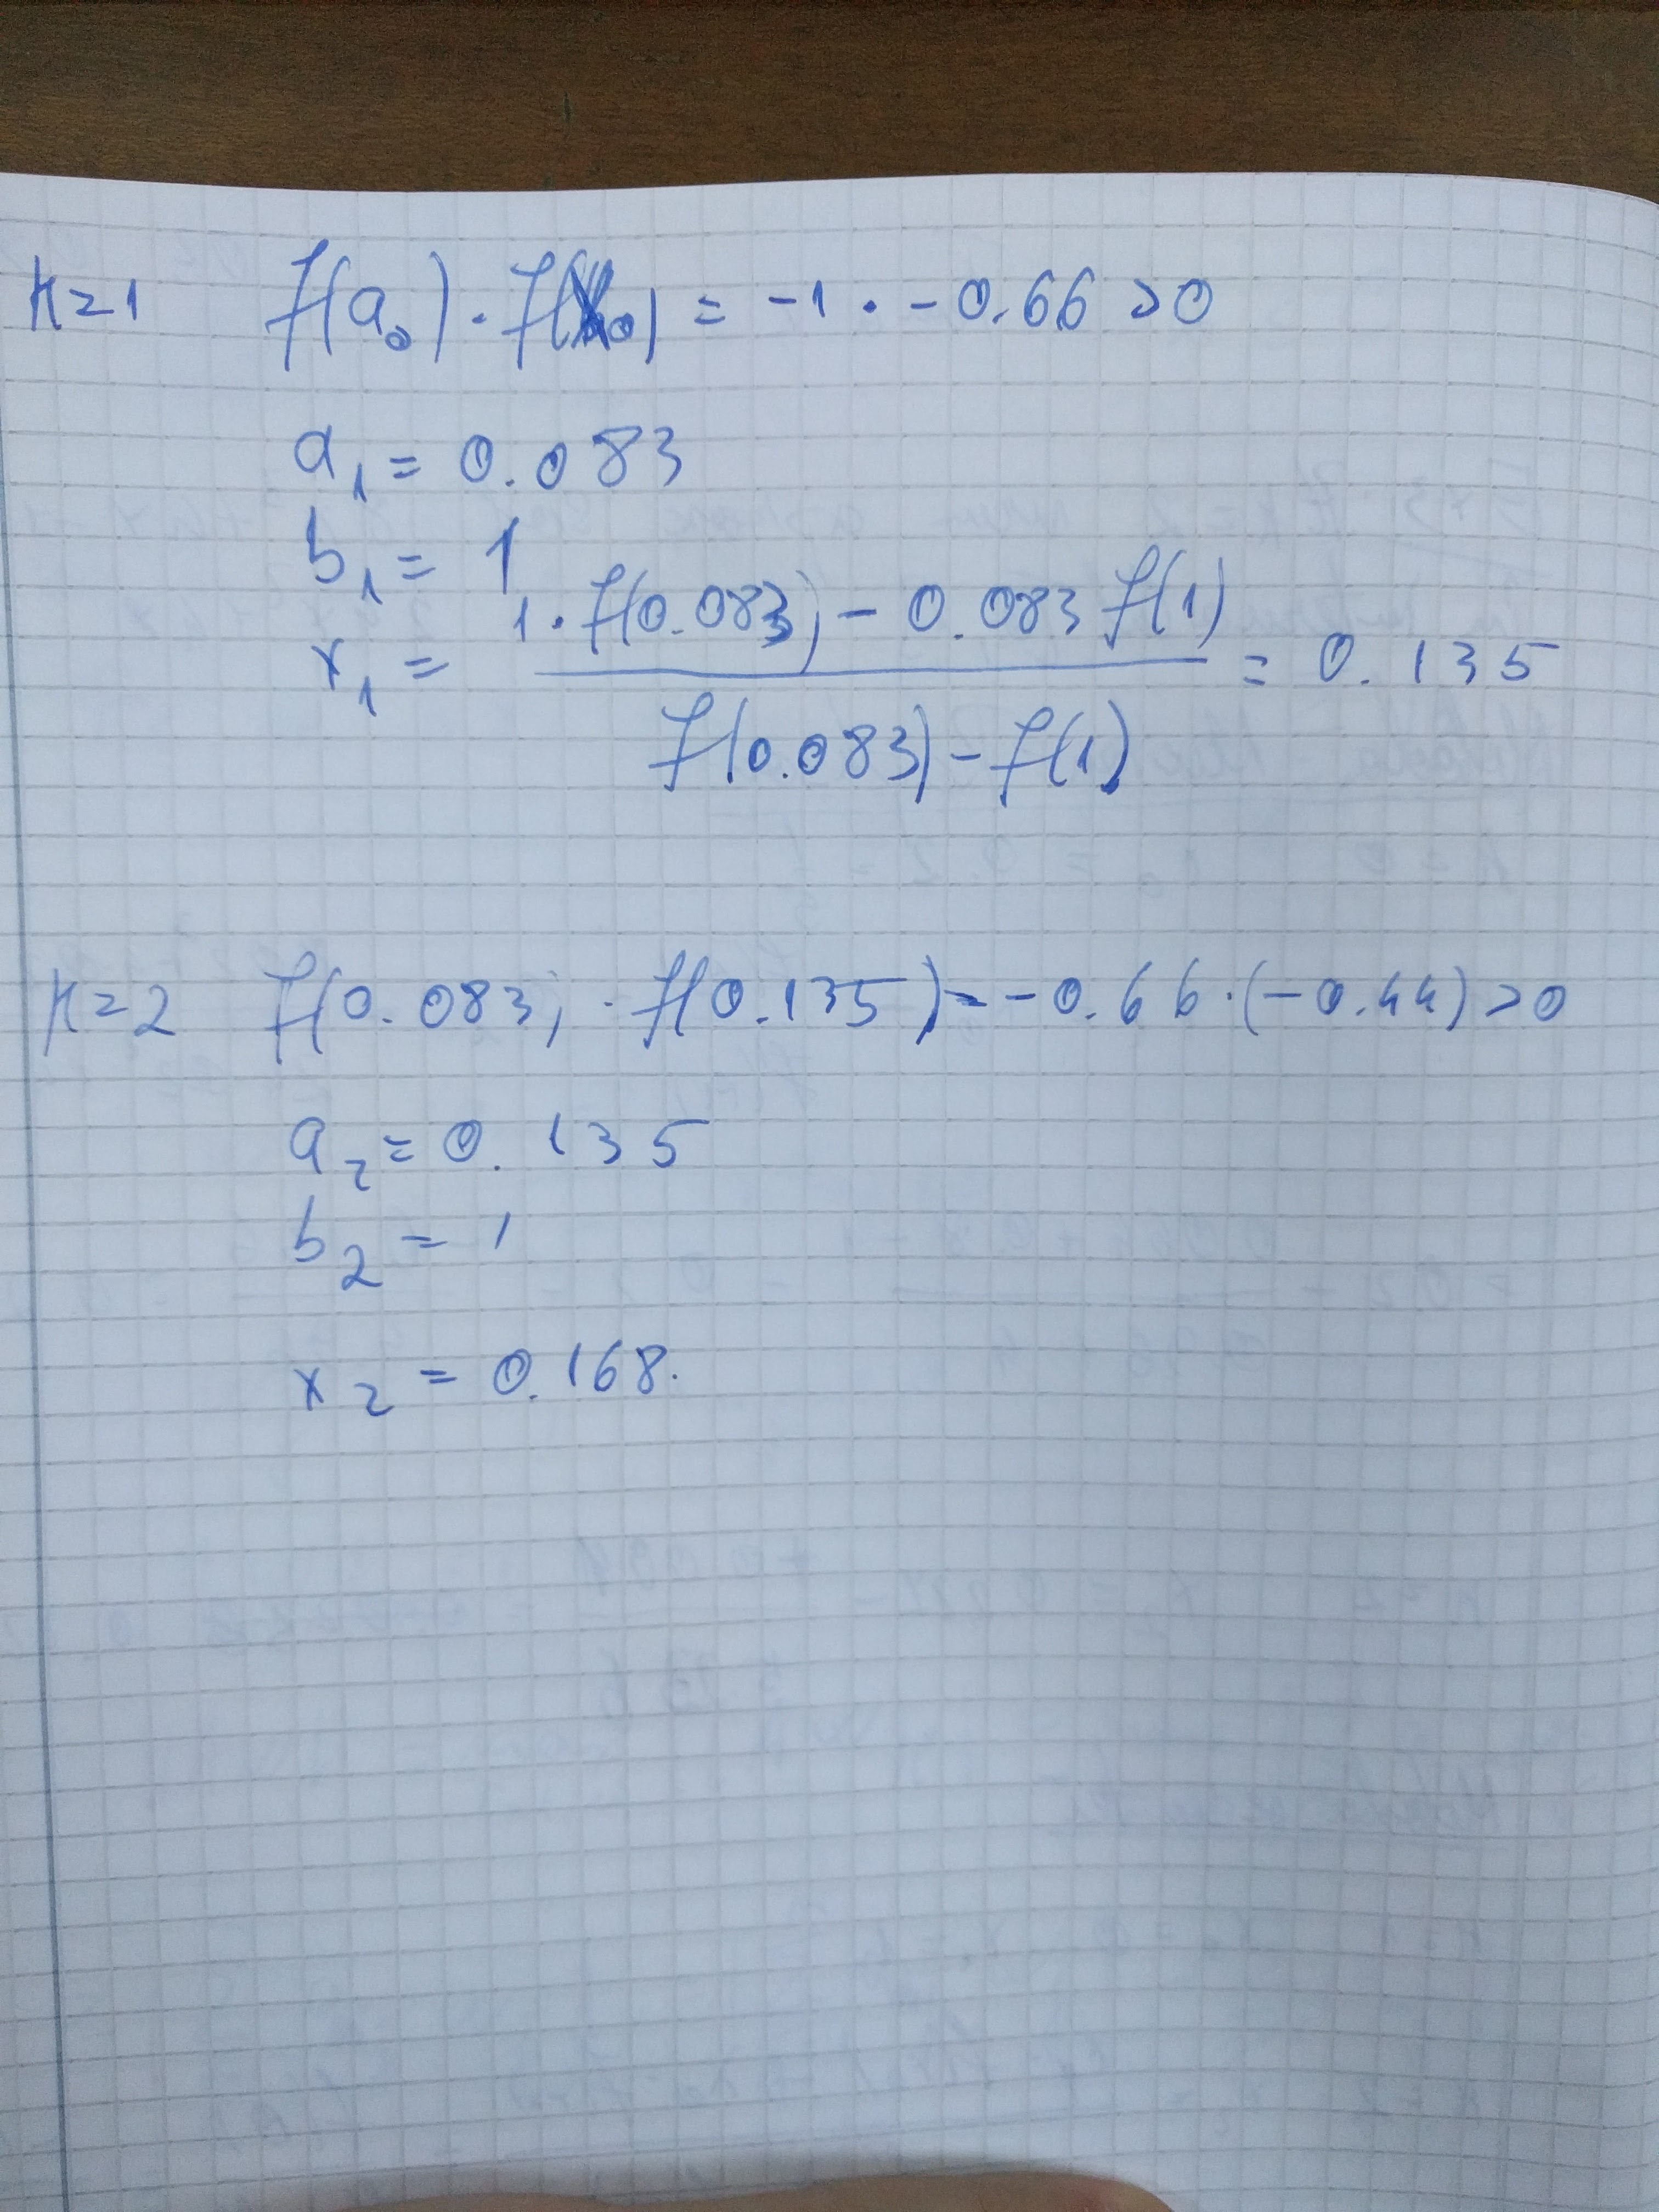 k=1 f(a₀)·f(x₀) = -1 · -0.66 >0
a₁ = 0.083
b₁ = 1
x₁ = (1·f(0.083) - 0.083 f(1)) / (f(0.083) - f(1)) = 0.135
k=2 f(0.083) · f(0.135) = -0.66·(-0.44) >0
a₂ = 0.135
b₂ = 1
x₂ = 0.168.